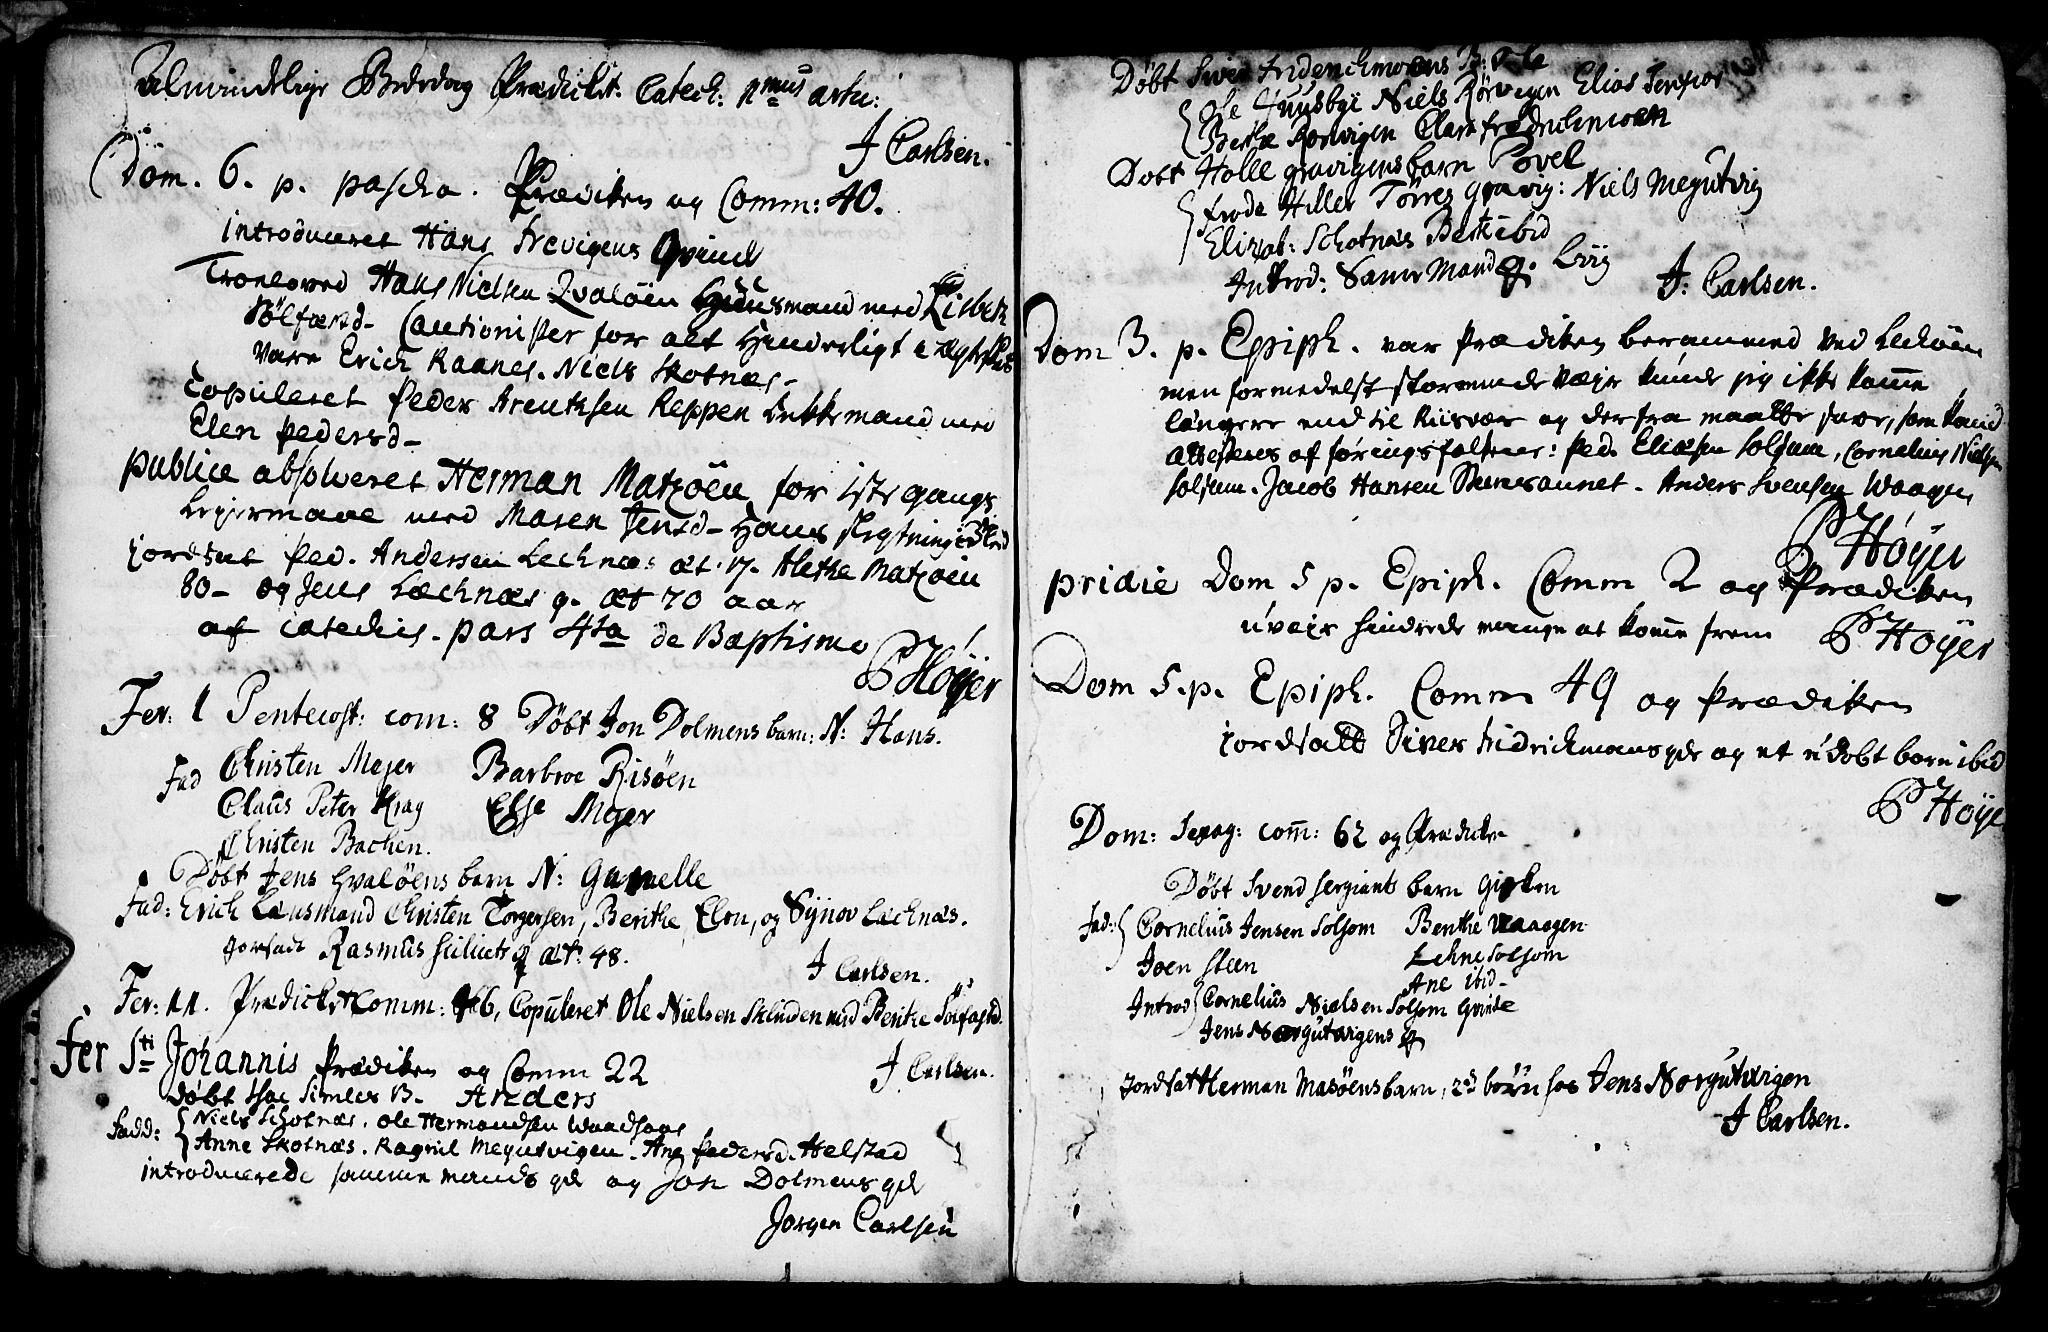 Almindelige Bededag Prædicket. Catech: 1mus artic:
J Carlsen.
Dom. 6. p. pascha. Prædiken og Comm: 40.
introduceret Hans Trevigens Qvinde
Troloved Hans Nielsen Qvaløen Huusmand med Lisbeth
Sølfæstd- Cautionister for alt Hinderligt
vare Erich Raanes. Niels Skotnæs-
Copuleret Peder Arentzsen Reppen Enkkemand med
Elen Pedersd-
publice absolveret Herman Matzøen for iste gangs
Leyermaal med Maren Jensd- Hans
jordsat Ped. Andersen Lechnæs æt. 17. Alethe Matzøen
80- og Jens Lechnæs q. æt 70 aar
af Catechis. pars 4ta de Baptismo
P Høyer
Fer: 1 Pentecost: com: 8 Døbt Jon Dolmens barn: N: Hans.
Fad Christen Mejer Barbroe Risøen
Claus Peter Krag Else Mejer
Christen Bachen.
Døbt Jens Hvaløens barn N: Gunelle
Fad: Erich Lensmand Christen Torgersen, Berithe, Elen, og Synov Lechnæs.
Jorsadt Rasmus q æt: 48.
J Carlsen.
Fer: 11. Prædicket Comm: 46, Copuleret Ole Nielsen med Berithe Sølfæstd.
J Carlsen.
Fer Sti Johannis Prædiken og Comm 22
Døbt Isac Simles B. Anders
Fadd: Niels Schotnæs, Ole Hermandsen
Anne Skotnæs. Ragnil Megutvigen. Ane Pedersd. Helstad
introducerede samme mands qd og Jon Dolmens qd
Jørgen Carlsen
Døbt Friderichmoens B: Ole
Ole Huusbye Niels Rørvigen Elias
Berthe Rørvigen Clara Fredrichmoen
Døbt Halle gravigens barn Povel
Frode Hiller Tørres gravig: Niels Megutvig
Elizab: Schotnæs Berit ibid
Introd: Samme Mands q.
J: Carlsen.
Dom 3. p. Epiph. var Prædiken berammed ved Lechøen
men formedelst stormende Vejr kunde jeg ikke komme
længere end til Riisvær og derfra maatte fare, som kand
attesteres af føringsfolkene: Ped. Eliæsen Solsem, Cornelius Nielsen
Solsem. Jacob Hansen. Anders Svensen Waagen
P Høyer
pridie Dom 5 p. Epiph. Comm 2 og Prædiken
uvejr hindrede mange at komme frem P Høyer
Dom 5. p. Epiph. Comm 49 og Prædiken
jordsatt Siver Fridrichmoens qde og et udøbt barn ibid
P Høyer
Dom: Sexag: com: 62 og Prædiken
Døbt Svend sergiants barn
Fad: Cornelius Jensen Solsom Benthe Waaagen
Joen Steen Lehne Solsom
Ane ibid-
Introd Cornelius Nielsen Solsom Qvinde
Jens Norgutvigens q
Jordsat Herman Masøens barn, 2de børn hos Jens Norgutvigen
J Carlsen.